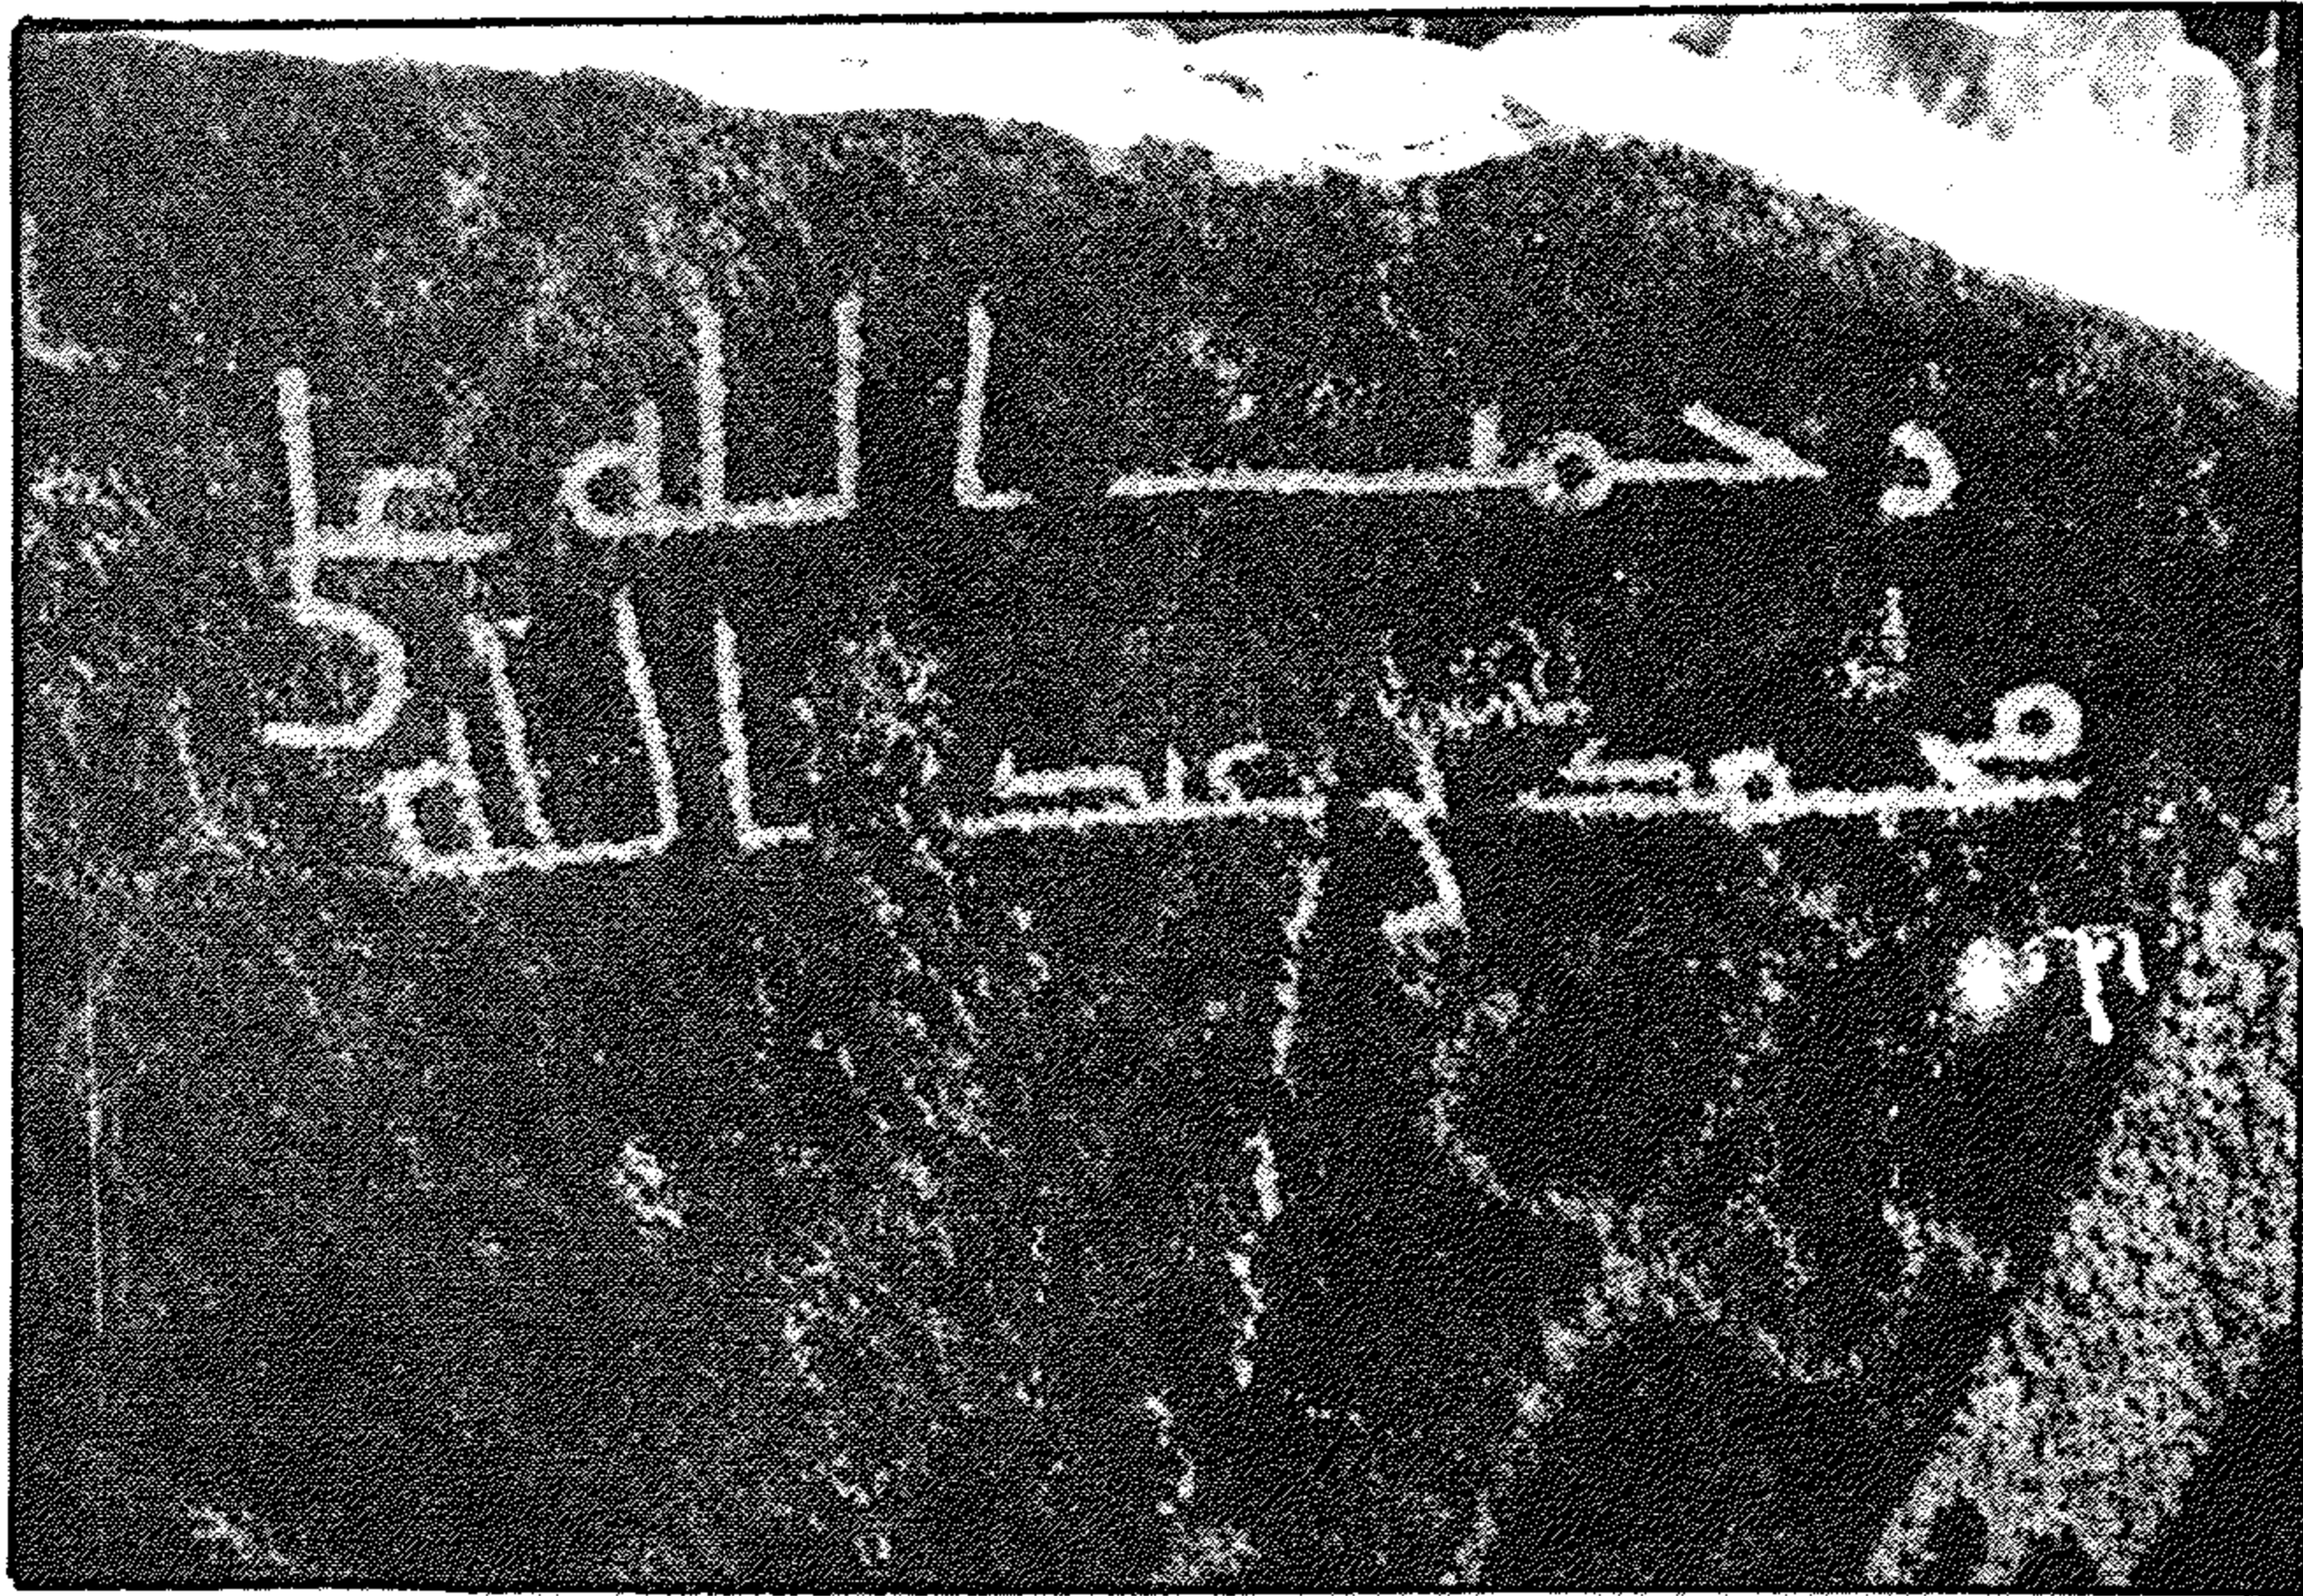 رحمت الله على
محمد بن عبد الله